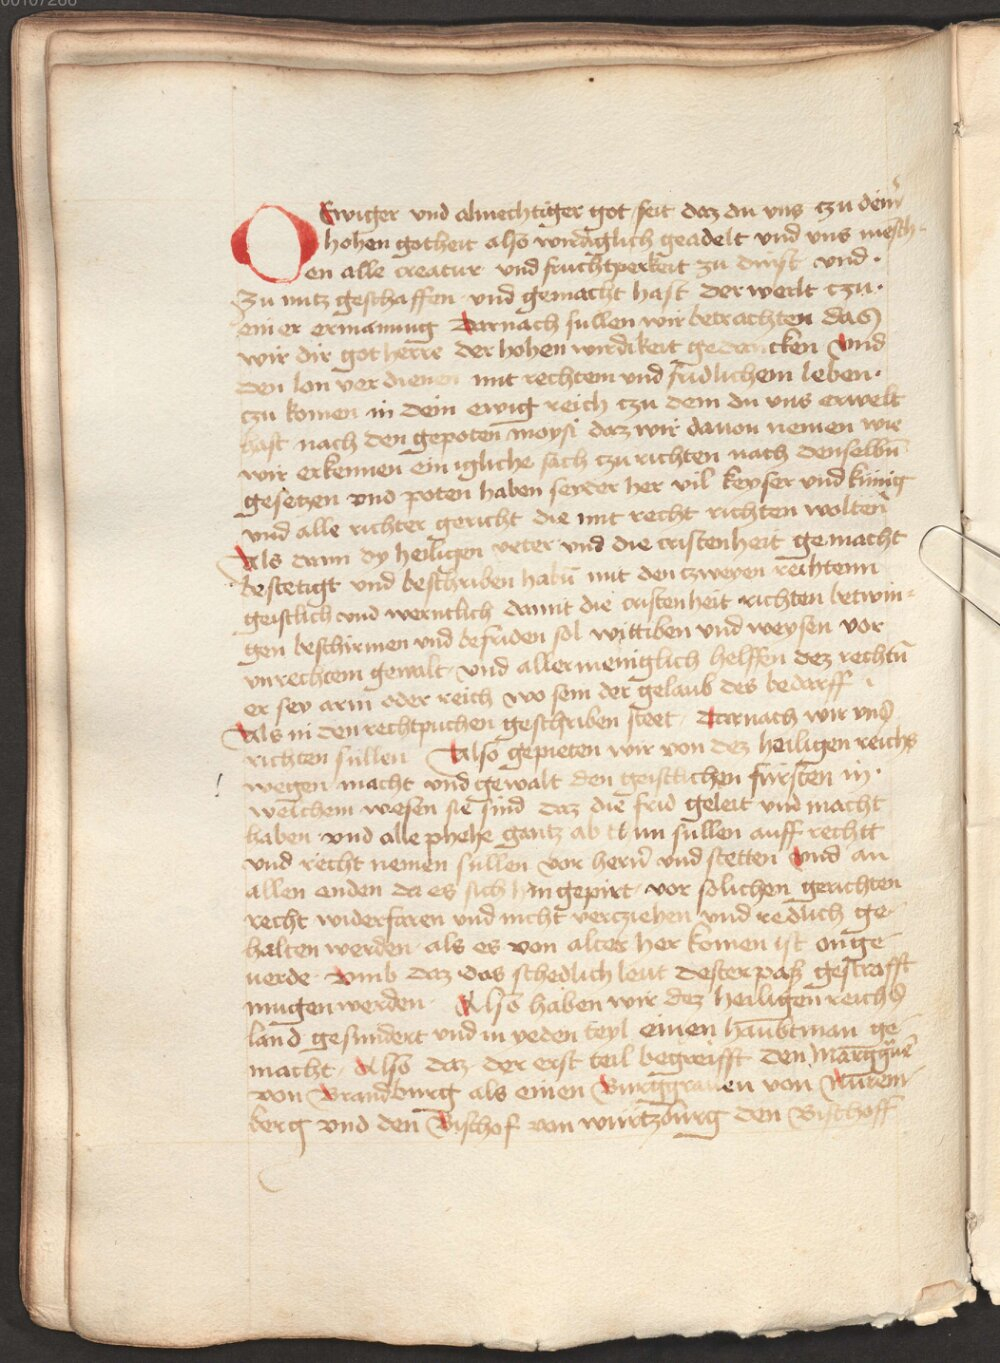 O Ewiger vnd almechtiger got seit daz du vns czu deinr
hohen gotheit also wirdiglich geadelt vnd vns mensch-
en alle creatur vnd fruchtperkeit zu dinst vnd ·
Zu nutz geschaffen vnd gemacht hast der werlt czu ·
einer ermanung Darnach sullen wir betrachten das
wir dir got herre der hohen wirdikeit gedencken Vnd
den lon verdienen mit rechtem vnd fridlichem leben ·
czu komen in dein ewig reich czu dem du vns erwelt
hast nach den gepoten moysi daz wir dauon nemen wie
wir erkennen ein igliche sach czu richten nach denselbn̄
gesetzen vnd poten haben seyder her vil keyser vnd kunig
vnd alle richter gericht die mit recht richten wolten
Als dann dy heiligen veter vnd die cristenheit gemacht
bestetigt vnd beschriben habn̄ mit den zweyen rechtenn
geistlich vnd werntlich damit die cristenheit richten betwin-
gen beschirmen vnd befriden sol wittiben vnd weysen vor
vnrechtem gewalt vnd allermeniglich helffen dez rechtn̄
er sey arm oder reich wo sein der gelaub des bedarff
Als in den rechtpuchen geschriben steet Darnach wir vns
richten sullen Also gepieten wir von dez heiligen reichs
wegen macht vnd gewalt den geistlichen fürsten in ·
welichem wesen sie sind daz die frid geleit vnd macht
haben vnd alle phehe gantz ab sullen auff rechtt
vnd recht nemen sullen vor hern̄ vnd stetten Vnd an
allen enden da es sich hin gepirt vor solichen gerichten
recht widerfaren vnd nicht verczichen vnd redlich ge-
halten werden als es von alter her komen ist onge-
uerde Vmb daz das schedlich leut dester paß gestrafft
mugen werden Also haben wir dez heiligen reichs
land gesundert vnd in yeden teyl einen haubtman ge-
macht Also daz der erst teil begreifft den Marggrauē
von Brandburg als einen Burggrauen von Nurem-
berg vnd den Bischof von wurtzburg den Bischoff